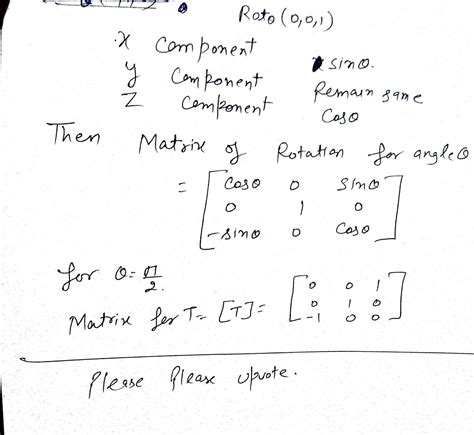 Roto (0,0,1)
x component sinθ.
y component Remain same
z component Cosθ
Then Matrix of Rotation for angle θ
= [ Cosθ 0 sinθ
0 1 0
-sinθ 0 Cosθ ]
for θ = π/2.
Matrix for T = [T] = [ 0 0 1
0 1 0
-1 0 0 ]
Please Please upvote.